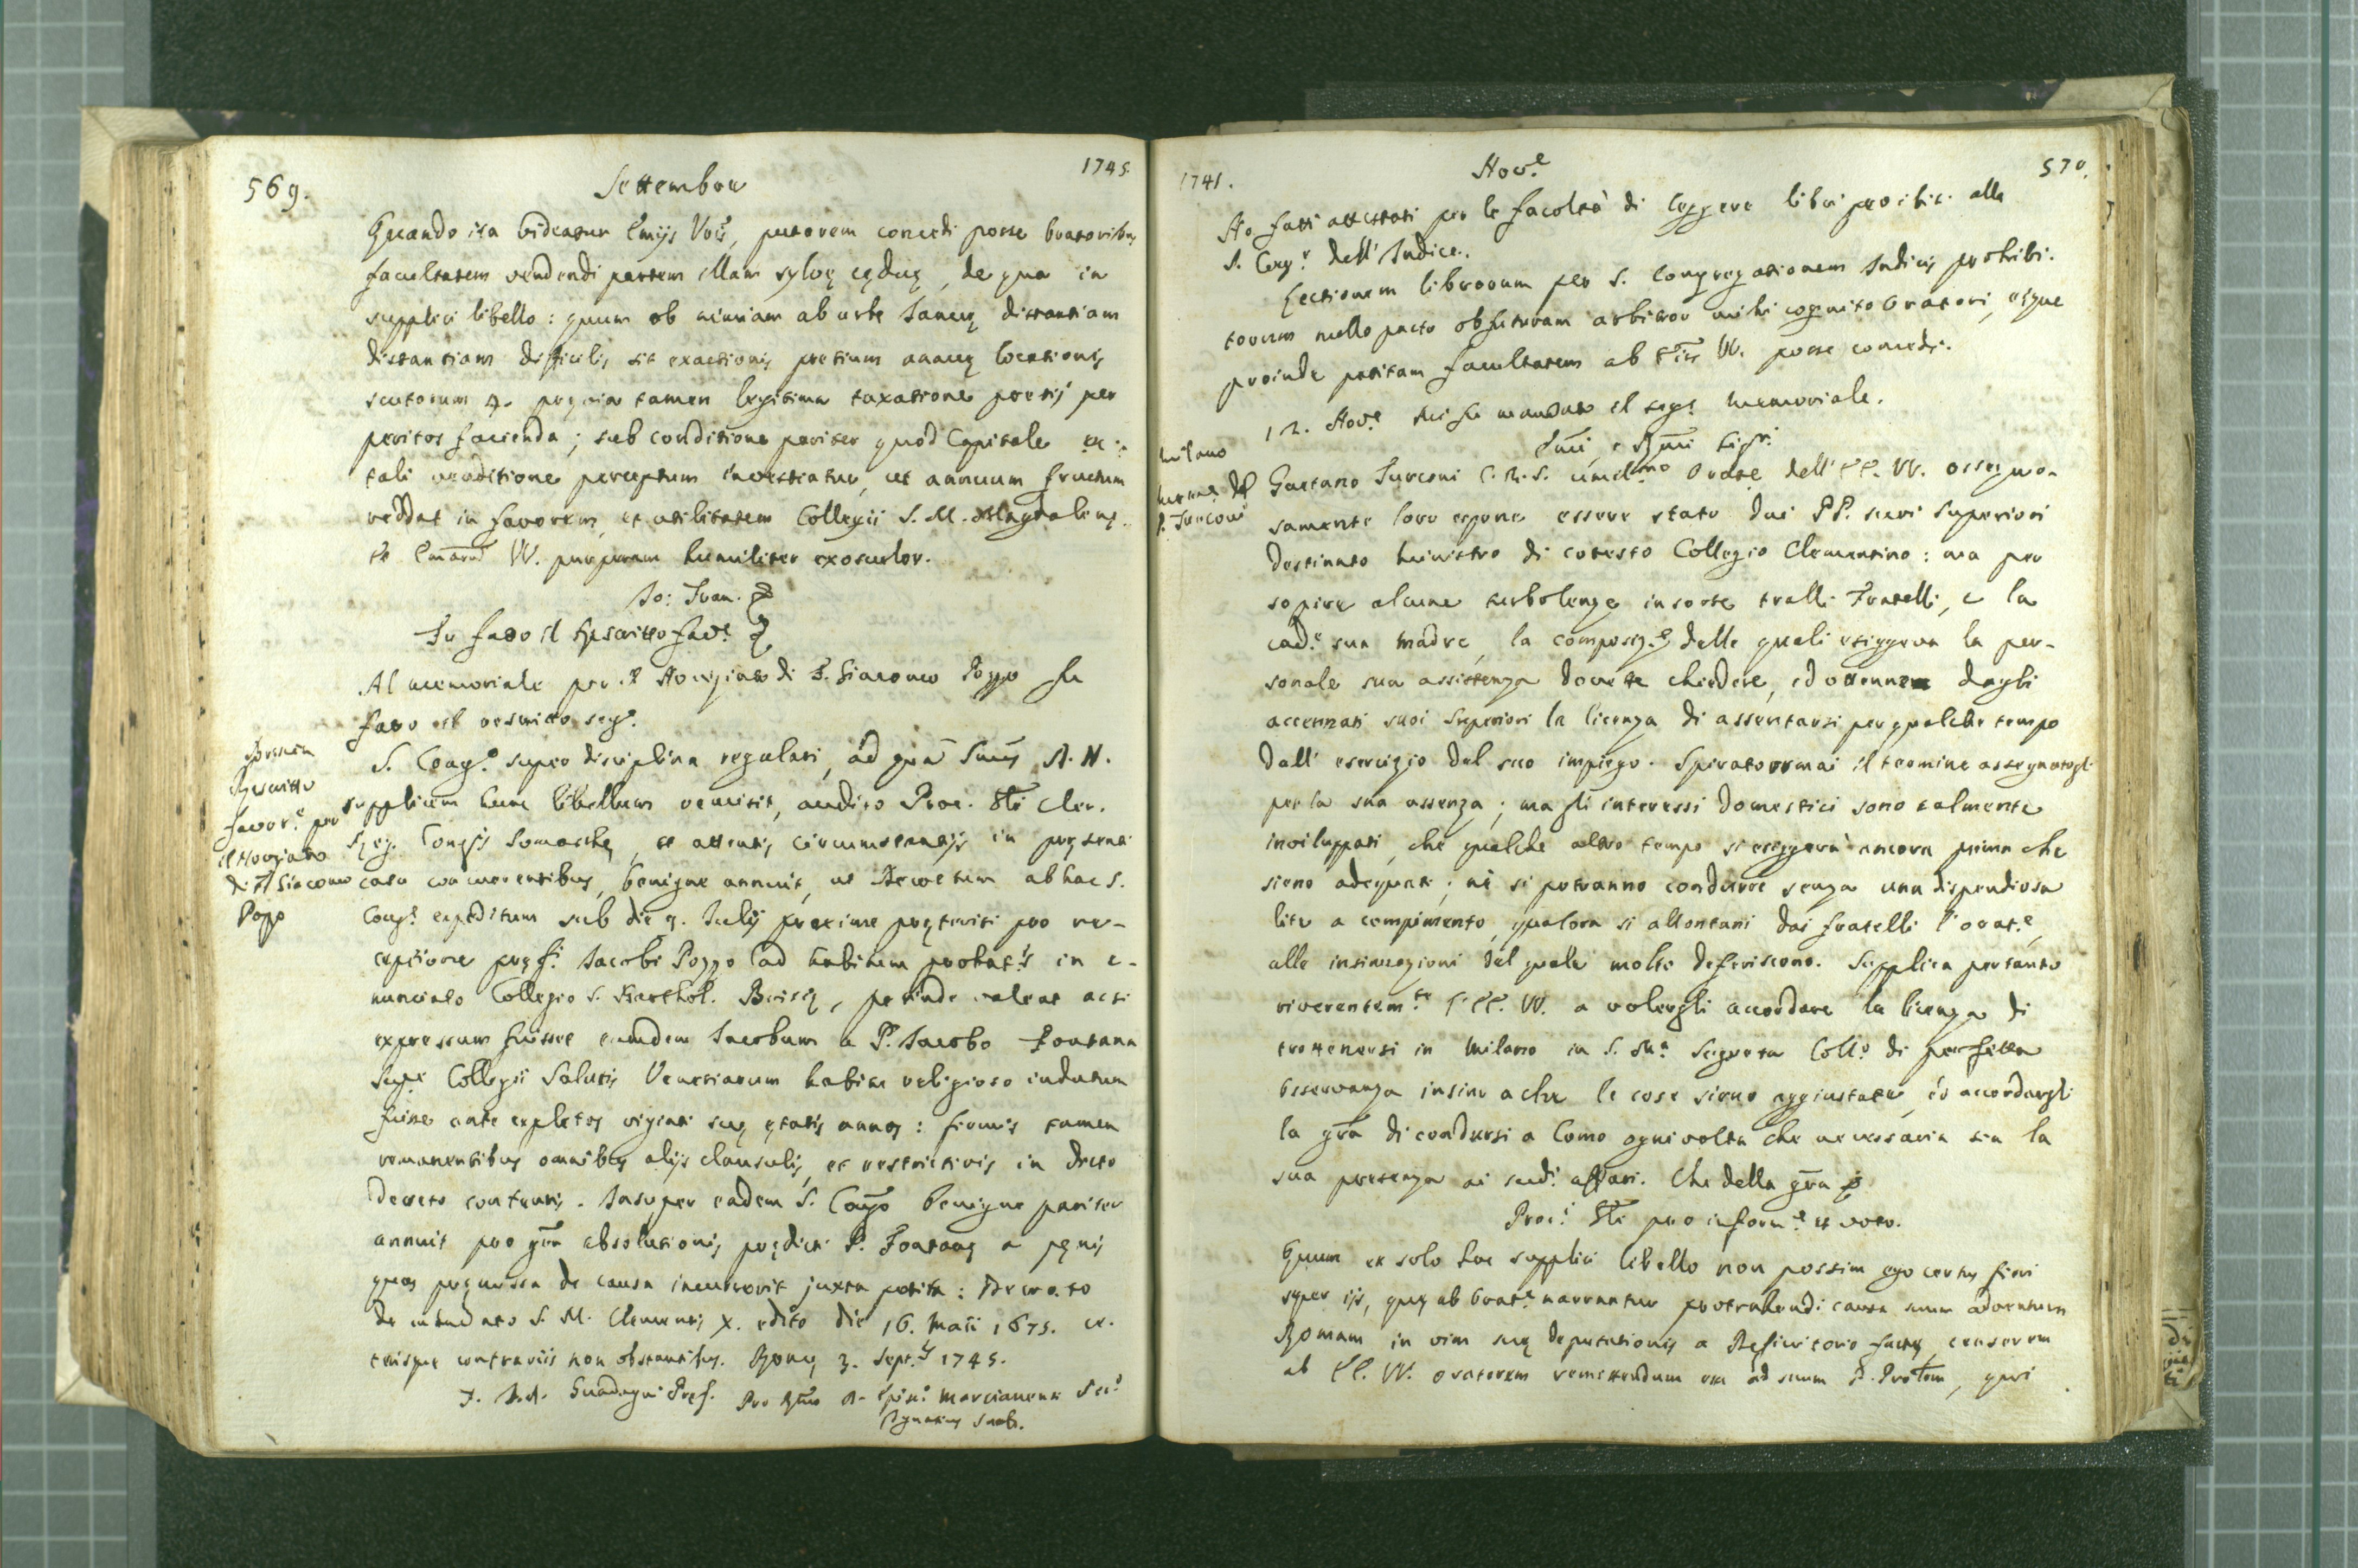 569. Settembre 1745.
Quando ita videatur Emijs Vrīs, putarem concedi posse Oratoribus
facultatem vendendi partem illam sylvę cęduę, de qua in
supplici libello: quum ob nimiam ab urbe Ianuę distantiam
distantiam difficilis sit exactionis pretium annuę locationis
scutorum 4. pręvia tamen legitima taxatione pretij per
peritos facienda; sub conditione pariter quod Capitale ex
tali venditione perceptum investiatur, ut annuum fructum
reddat in favorem, et utilitatem Collegii S. M. Magdalenę.
Et VV. purpuram humiliter exosculor.
Io: Fran.
Fu fatto il Rescritto fav.e
Al memoriale per il Noviziato di F. Giacomo Pozzo fu
fatto il rescritto seg.e
Brescia
Rescritto
favor.e per
il Noviziato
di F. Giacomo
Pozzo
S. Congr. super disciplina regulari, ad quā Smūs D. N.
supplicem hunc libellum remisit, audito Proc. Gli Cler.
Reg. Congīs Somaschę, et attentis circumstantijs in pręsenti
casu concurrentibus, benigne annuit, ut Decretum ab hac S.
Cong.e expeditum sub die 9. Iulij proxime pręteriti pro re-
ceptione pręf.i Iacobi Pozzo ad habitum probat.is in e-
nunciato Collegio S. Barthol. Brixię, perinde valeat ac si
expressum fuisset eumdem Iacobum a P. Iacobo Fontana
Sup.e Collegii Salutis Venetiarum habitu religioso indutum
fuisse ante expletos viginti suę ętatis annos: firmis tamen
remanentibus omnibus alijs clausulis, et restrictivis in dicto
Decreto contentis. Insuper eadem S. Congō benigne pariter
annuit pro grā absolutionis prędicti P. Fontanę a pęnis
quas pręmissa de causa incurrerit juxta petita: Decreto
de mandato S. M. Clementis X. edito die 16. Maii 1675. ce-
terisque contrariis non obstantibus. Romę 3. Sept.is 1745.
F. I. A. Guadagni Pref. Pro A. Marcianen
1745. Nov.e 570.
Ho fatti attestati per le facoltà di leggere libri proibiti alla
S. Cong.e dell'Indice.
Lectionem librorum per S. Congregationem Indicis prohibi-
torum nullo pacto obfuturam arbitror mihi cognito Oratori, eique
proinde petitam facultatem ab VV. posse concedi.
12. Nov.e mi fu mandato il seg.e memoriale.
Milano
Mem.e del
P. Turconi
Emī, e Rmī Sig.ri
Gaetano Turconi C.R.S. umil.mo Orate dell'EE. VV. ossequio-
samente loro espone essere stato dai PP. suoi Superiori
destinato Ministro di cotesto Collegio Clementino: ma per
sopire alcune turbolenze insorte tralli Fratelli, e la
cad.e sua Madre, la composiz.e delle quali esiggeva la per-
sonale sua assistenza dovette chiedere, ed ottenne dagli
accennati suoi Superiori la licenza di assentarsi per qualche tempo
dall'esercizio del suo impiego. Spirato ormai il termine assegnatogli
per la sua assenza; ma gli interessi domestici sono talmente
inviluppati, che qualche altro tempo si esiggerà ancora prima che
sieno adequati; nè si potranno condurre senza una dispendiosa
lite a compimento, qualora si allontani dai fratelli l'orat.e,
alle insinuazioni del quale molto deferiscono. Supplica pertanto
riverentem.te l'EE. VV. a volergli accordare la licenza di
trattenersi in Milano in S. Ma Segreta Coll.o di perfetta
osservanza insino a che le cose sieno aggiustate, ed accordargli
la grā di condursi a Como ogni volta che necessaria sia la
sua presenza ai sud.i affari. Che della grā
Proc.i Gli pro inform.e et voto.
Quum ex solo hoc supplici libello non possim ego certus fieri
super ijs, quę ab Orat.e narrantur protrahendi causa suum adventum
Romam in vim suę deputationis a Definitorio factę, censerem
ab EE. VV. oratorem remittendum esse ad suum P. , qui